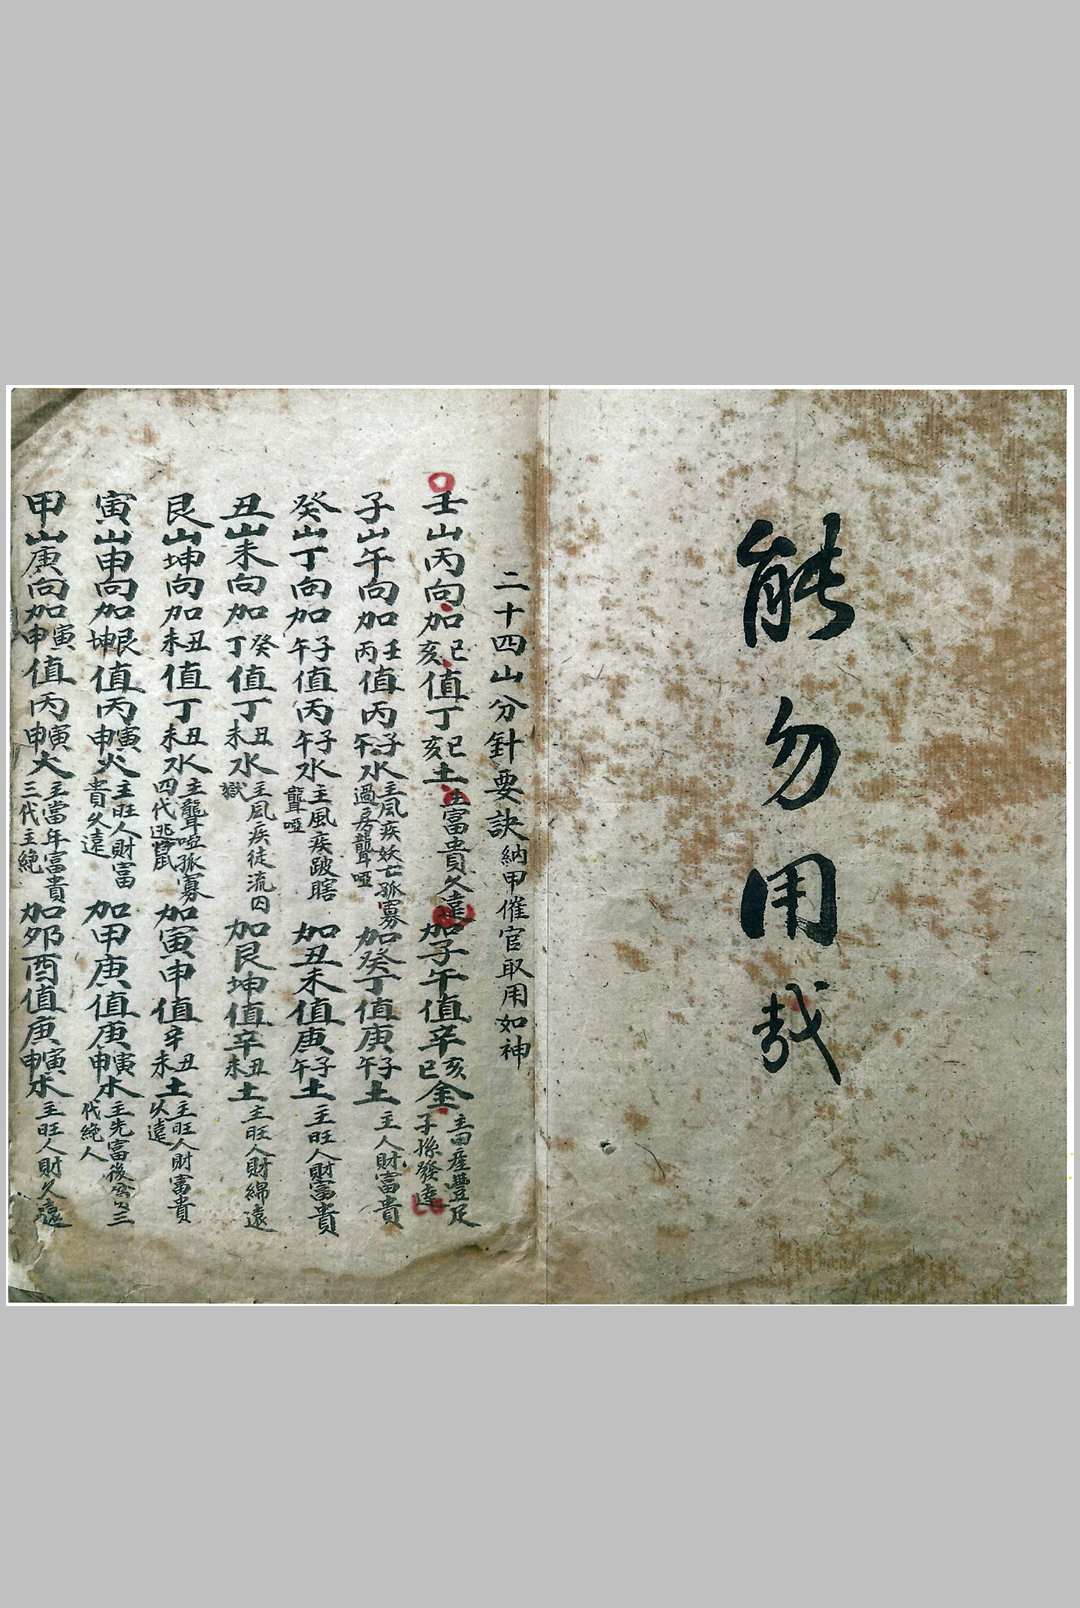 能勿用哉
二十四山分針要訣 納甲催官取用如神
壬山丙向加巳亥值丁巳丁亥土 主富貴久遠 加子午值辛亥辛巳金 主田產豐足子孫發達
子山午向加壬丙值丙子丙午水 主風疾妖亡孤寡過房聾啞 加癸丁值庚子午土 主人財富貴
癸山丁向加子午值丙子午水 主風疾跛瞎聾啞 加丑未值庚子午土 主旺人財富貴
丑山未向加癸丁值丁丑未水 主風疾徒流囚獄 加艮坤值辛丑未土 主旺人財綿遠
艮山坤向加丑未值丁丑未水 主聾啞孤寡四代逃 加寅申值辛丑未土 主旺人財富貴以遠
寅山申向加艮坤值丙寅申火 主旺人財富貴久遠 加甲庚值庚寅申木 主先富後三代絶人
甲山庚向加寅申值丙寅申火 主當年富貴三代主絶 加卯酉值庚寅申木 主旺人財久遠